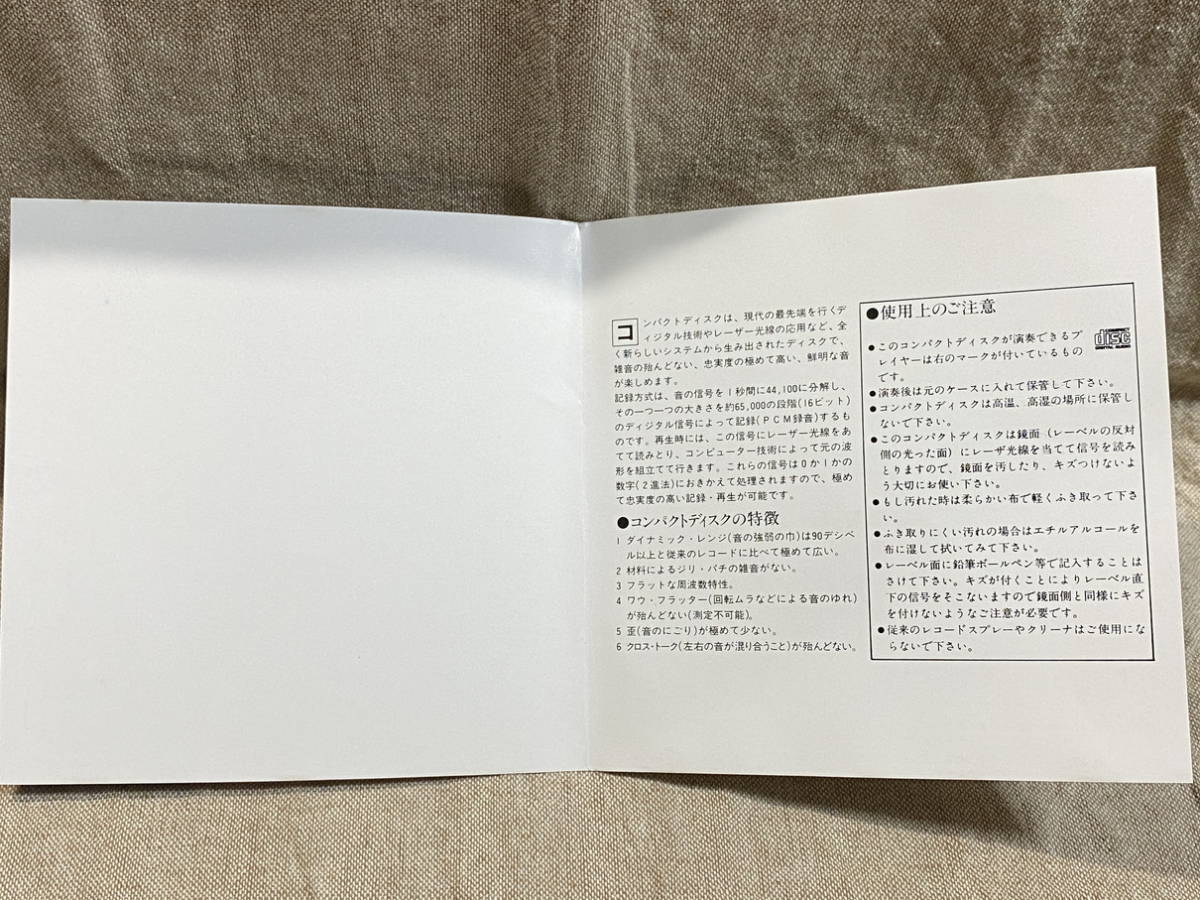 コンパクトディスクは、現代の最先端を行くデ
ィジタル技術やレーザー光線の応用など、全
く新らしいシステムから生み出されたディスクで、
雑音の殆んどない、忠実度の極めて高い、鮮明な音
が楽しめます。
記録方式は、音の信号を1秒間に44,100に分解し、
その一つ一つの大きさを約65,000の段階(16ビット)
のディジタル信号によって記録(PCM録音)するも
のです。再生時には、この信号にレーザー光線をあ
てて読みとり、コンピューター技術によって元の波
形を組立てて行きます。これらの信号は0か1かの
数字(2進法)におきかえて処理されますので、極め
て忠実度の高い記録・再生が可能です。
●コンパクトディスクの特徴
1 ダイナミック・レンジ(音の強弱の巾)は90デシベ
ル以上と従来のレコードに比べて極めて広い。
2 材料によるジリ・パチの雑音がない。
3 フラットな周波数特性。
4 ワウ・フラッター(回転ムラなどによる音のゆれ)
が殆んどない(測定不可能)。
5 歪(音のにごり)が極めて少ない。
6 クロス・トーク(左右の音が混り合うこと)が殆んどない。
●使用上のご注意
●このコンパクトディスクが演奏できるプ
レイヤーは右のマークが付いているもの
です。
COMPACT
disc
DIGITAL AUDIO
●演奏後は元のケースに入れて保管して下さい。
●コンパクトディスクは高温、高湿の場所に保管し
ないで下さい。
●このコンパクトディスクは鏡面(レーベルの反対
側の光った面)にレーザ光線を当てて信号を読み
とりますので、鏡面を汚したり、キズつけないよ
う大切にお使い下さい。
●もし汚れた時は柔らかい布で軽くふき取って下さ
い。
●ふき取りにくい汚れの場合はエチルアルコールを
布に湿して拭いてみて下さい。
●レーベル面に鉛筆ボールペン等で記入することは
さけて下さい。キズが付くことによりレーベル直
下の信号をそこないますので鏡面側と同様にキズ
を付けないようなご注意が必要です。
●従来のレコードスプレーやクリーナはご使用にな
らないで下さい。